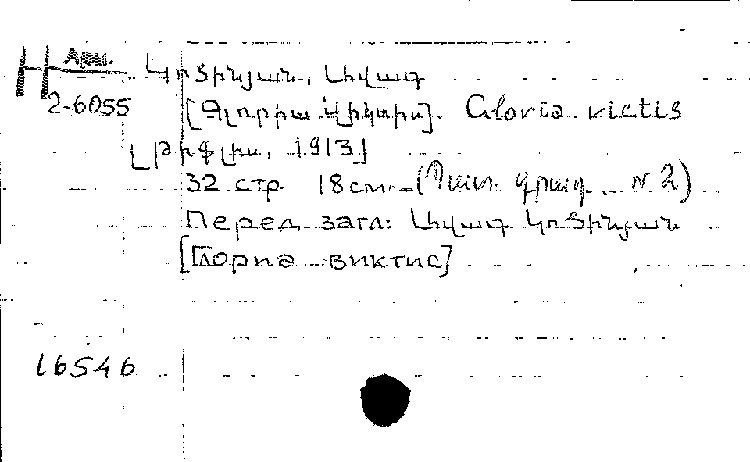 Н Арм. Կոճինյան, Լիվագ
2-6055 [Գլորիա վիկտիս]. Gloria victis
[Թիֆլիս, 1913]
32 стр. 18 см. (Պատ. գրադ. № 2)
Перед загл:
[Глориа виктис]
16546